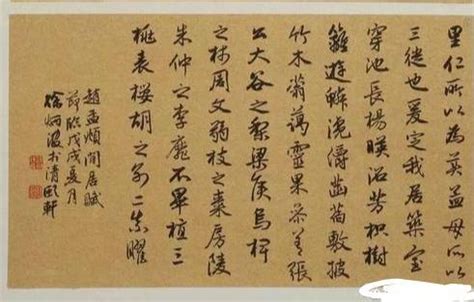 里仁所以為美孟母所以
三徙也爰定我居築室
穿池長楊暎沼芳枳樹
籬遊鱗瀺灂菡萏敷披
竹木蓊藹靈果參差張
公大谷之梨梁侯烏椑
之柿周文弱枝之棗房陵
朱仲之李靡不畢植三
桃表櫻胡之別二柰曜
趙孟頫閒居賦
節臨戊戌夏月
徐炳 清 軒